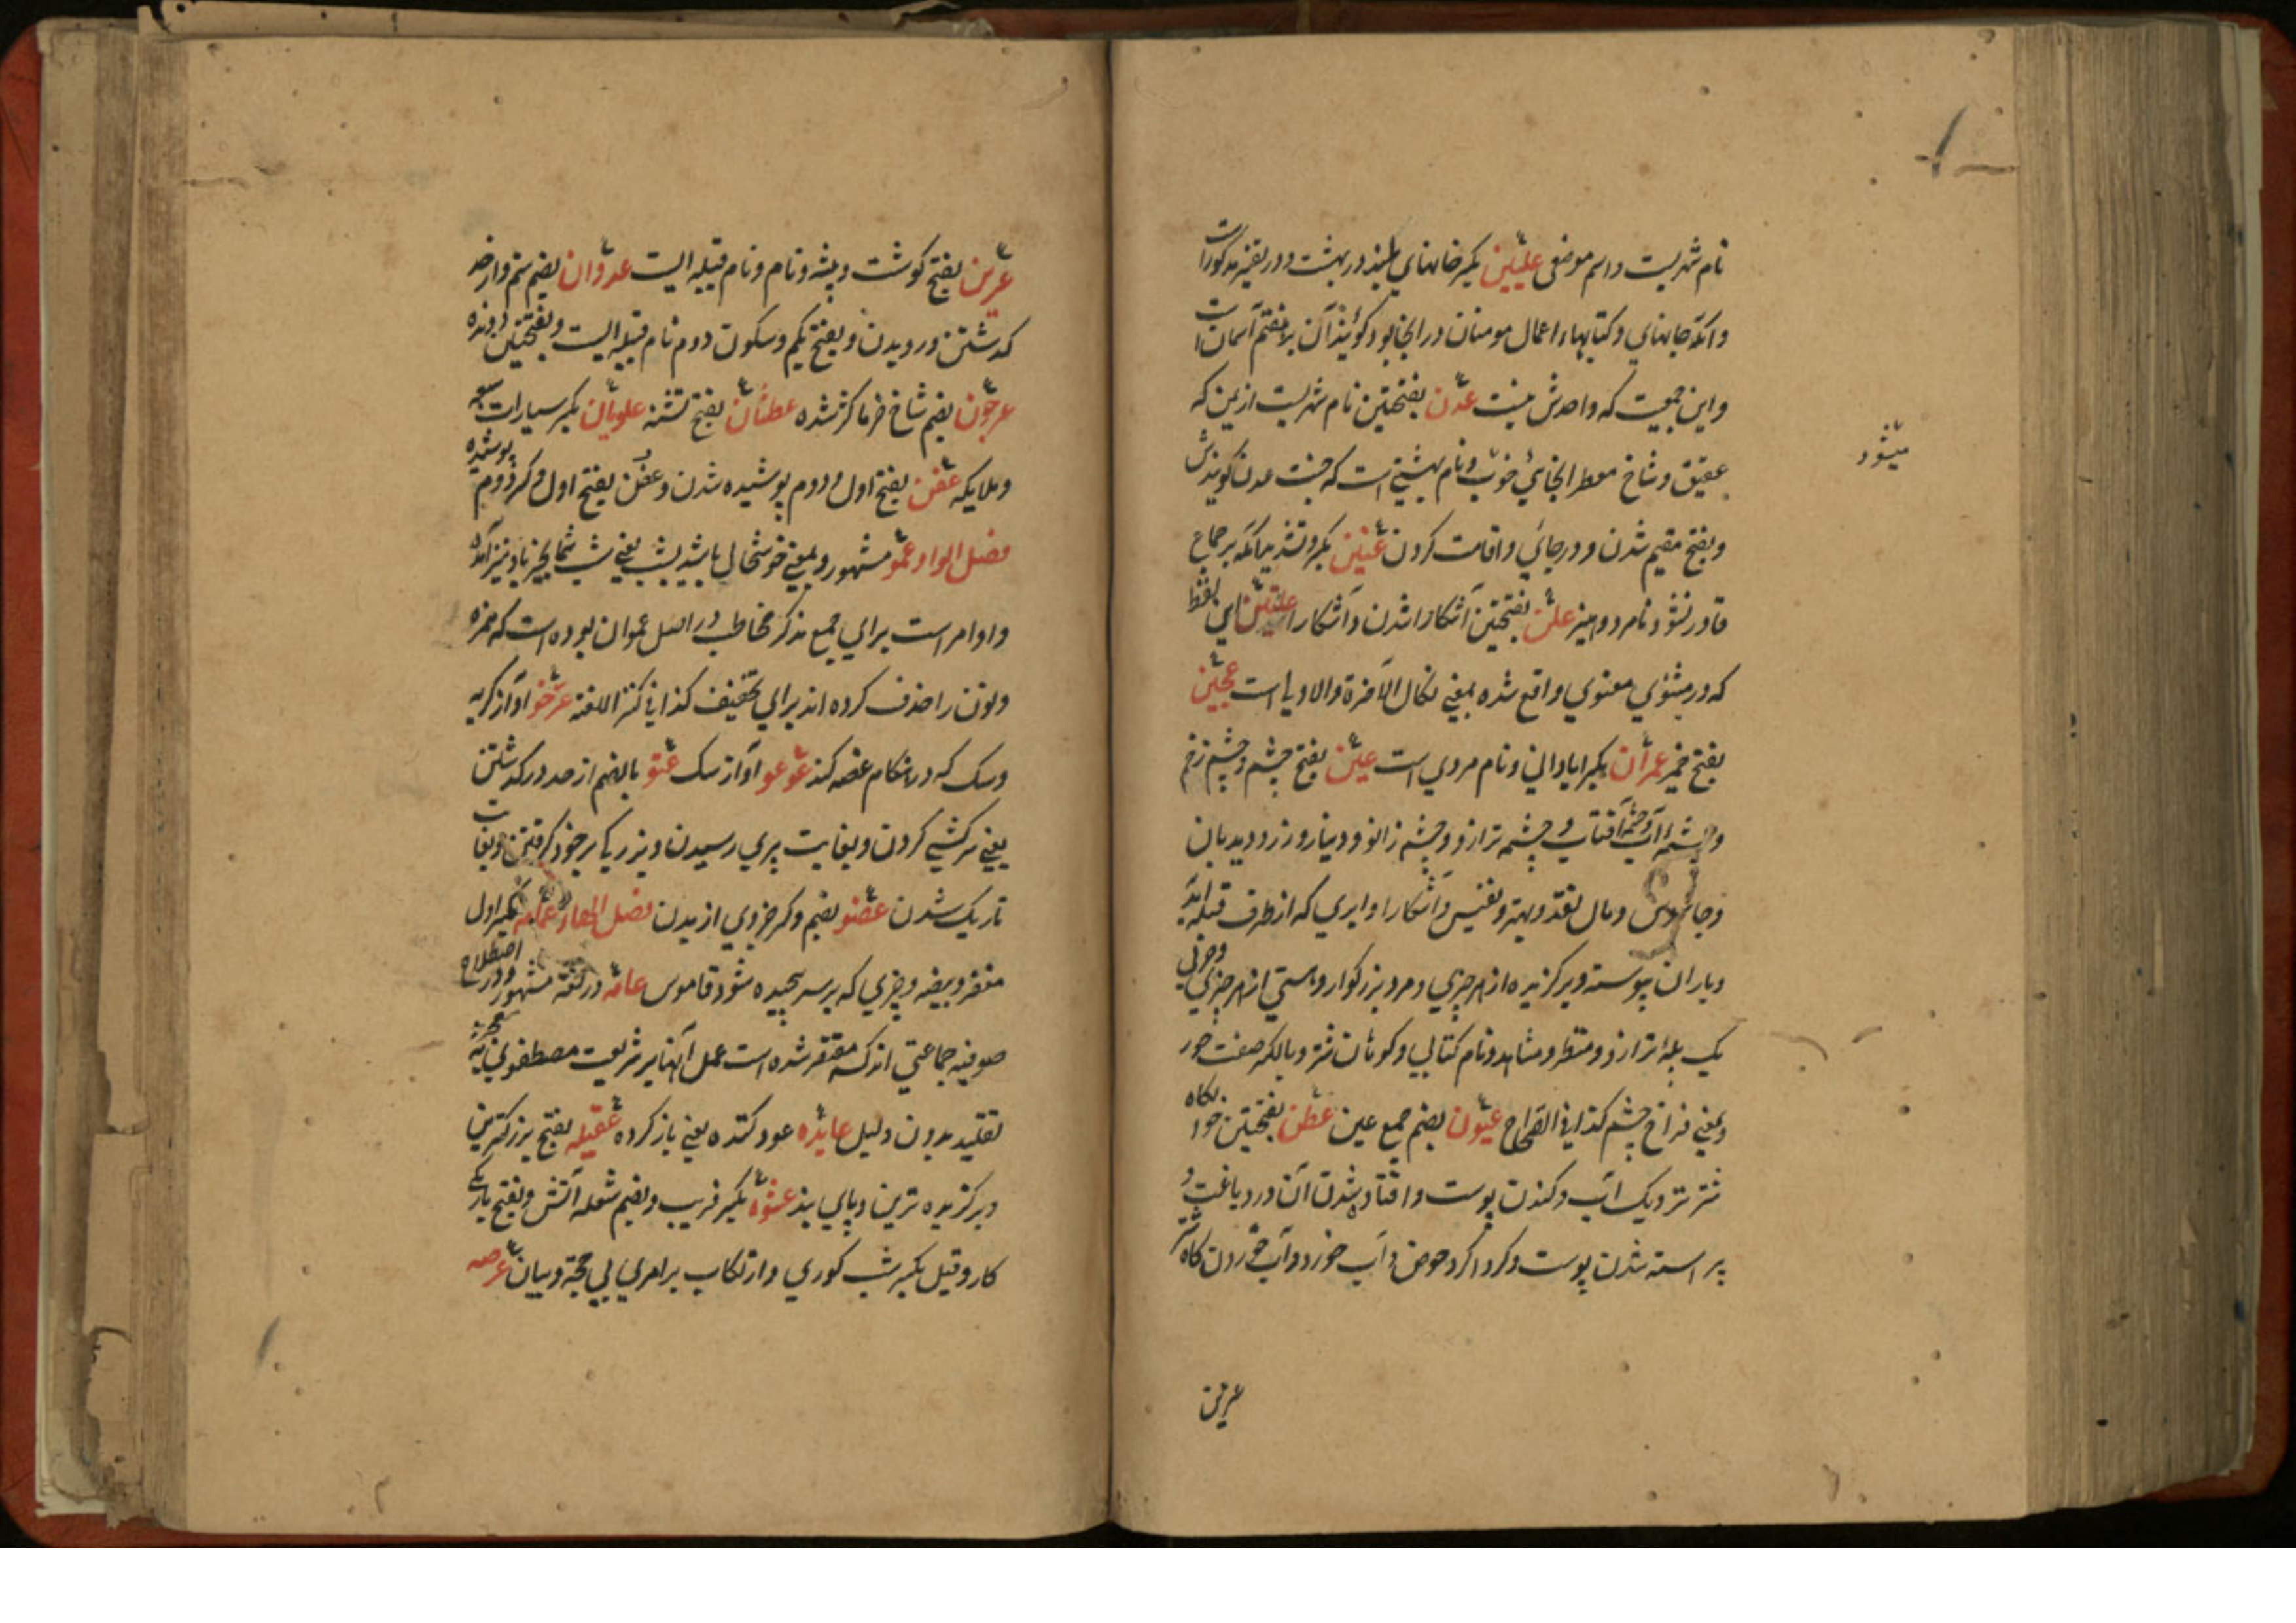 نام شهریست و اسم موضعی علیین بکسر خانهای بلند در بهشت و در تفسیر مذکور است
و آنکه جایهای و کتابهاء اعمال مومنان در انجا بود کویند آن بر هفتم آسمان است
و این جمعیت که واحدش نیست عدن بفتحتین نام شهریست از یمن که
عقیق و شاخ معطر انجائی خوب و نام بهشتی است که جنت عدن کویندش
و بفتح مقیم شدن و در جائی و اقامت کردن عنین بکسر و تشدید آنکه بر جماع
میشود
قادر نشود نامرد و امیز علن بفتحتین آشکارا شدن و آشکارا علیین این لفظ
که در مثنوی معنوی واقع شده بمعنی نکال الآخرة والاولیا است عجین
بفتح خمیر عمران بکسر ابادانی و نام مردی است عین بفتح چشم و چشم زخم
و چشمۀ آب و چشمۀ آفتاب و چشمه ترازو و چشم زانو و دینار و زر و دیدبان
و جاسوس و مال نقد و بهتر و نفیس و آشکارا و ابری که از طرف قبله آید
و باران پیوسته و برکزیده از هر چیزی و مرد بزرکوار و هستی از هر چیزی و حرفی
یک پلۀ ترازو و منظر و مشاهد و نام کتابی و کوهان شتر و بالکسر صفت حور
و بمعنی فراخ چشم کذا فی الصراح عیون بضم جمع عین عطن بفتحتین خوابکاه
شتر نزدیک آب و کندن پوست و افتاده شدن آن در دباغت و
پیراسته شدن پوست و کرد اکرد حوض و آب خورد و آب خوردن کاه شتر
عرین
عرین بفتح کوشت و بیشه و نام و نام قبیله ایست عدوان بضم ستم و از حد
کذشتن و رویدن و بفتح یکم و سکون دوم نام قبیله ایست و بفتحتین دونده
عرجون بضم شاخ خرما کژ شده عطشان بفتح تشنه علویان بکسر سیارات سبعه
و ملایکه عفن بفتح اول و دوم پوشیده شدن و عفن بفتح اول و کسر دوم پوشیده
فصل الواو عمو مشهور و بمعنی خوشحال باشید یعنی شب شما بخیر باد نیز آمده
و او امر است برای جمع مذکر مخاطب در اصل عموان بوده است که همزه
و نون را حذف کرده اند برای تخفیف کذا فی کنز اللغة عرخو اواز کربه
و سک که در هنکام غصه کند عوعو آواز سک عتو بالضم از حد در کذشتن
یعنی سرکشی کردن و بغایت پیری رسیدن و بزرکی بر خود کرفتن و بغایت
تاریک شدن عضو بضم و کسر جزوی از بدن فصل الهاء عمامه بکسر اول
مغفر و بیضه و چیزی که بر سر پیچیده شود قاموس عامه در لغة مشهور و در اصطلاح
صوفیه جماعتی اند که مقتصر شده است عمل آنها بر شریعت مصطفوی
تقلید بدون دلیل عایده عود کننده یعنی باز کرده عقیله بفتح بزرکترین
و برکزیده ترین و پای بند عشوه بکسر فریب و بضم شعله آتش و بفتح تاریکی
کار و قیل بکسر شب کوری و ارتکاب بر امری بی حجة و بیان عرصه